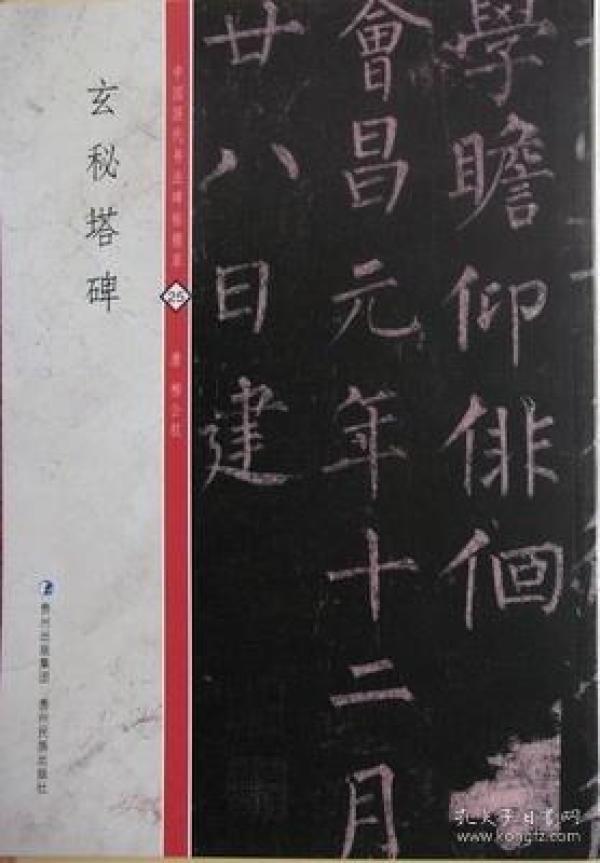 玄秘塔碑
中国历代书法碑帖精萃
25
唐 柳公权
贵州出版集团 贵州民族出版社
學瞻仰俳佪
會昌元年十二月
廿八日建
孔夫子旧书网
www.kongfz.com